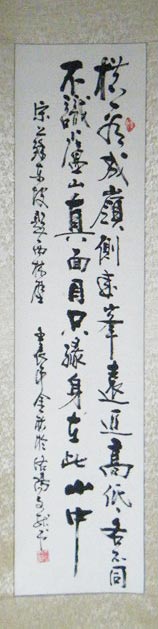 横看成嶺側成峯遠近高低各不同
不識廬山真面目只緣身在此山中
宋人蘇東坡題西林壁